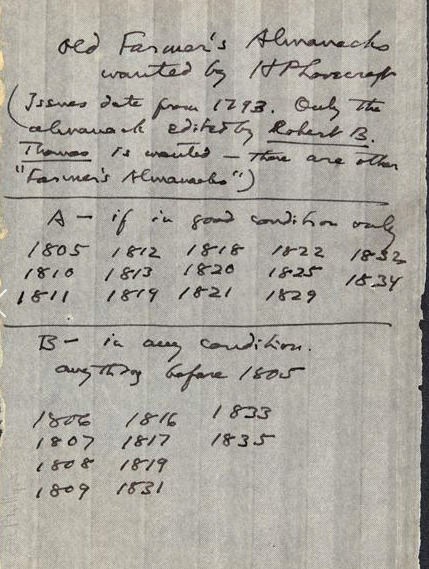 Old Farmer's Almanacks
wanted by HPLovecraft
(Issues date from 1793. Only the
almanack edited by Robert B.
Thomas is wanted — there are other
"Farmer's Almanacks")
A — if in good condition only
1805 1812 1818 1822 1832
1810 1813 1820 1825 1834
1811 1819 1821 1829
B — in any condition.
anything before 1805
1806 1816 1833
1807 1817 1835
1808 1819
1809 1831